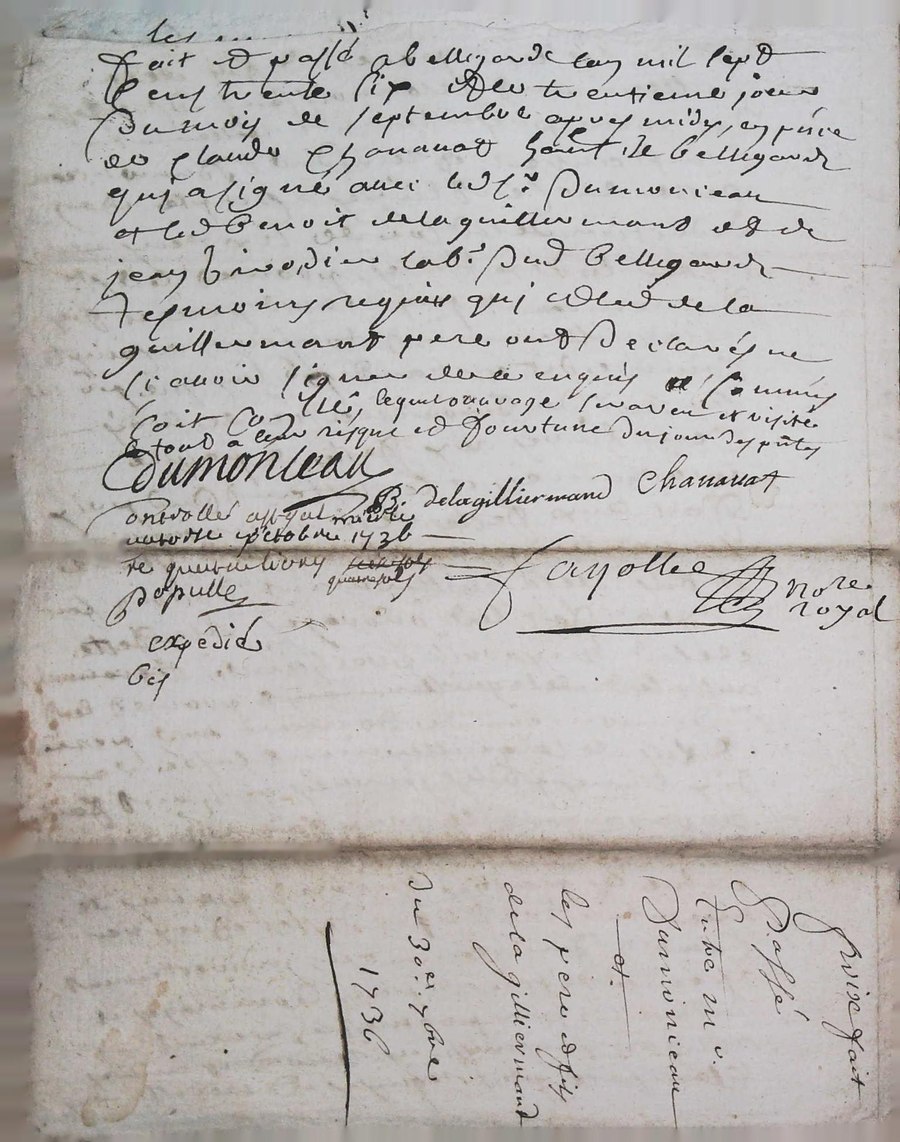 les
fait et passé a bellegarde lan mil sept
cens trente six et le trentieme jour
du mois de septembre apres midy, en pnce
de claude Chanavat de bellegarde
qui a signé avec led sr. Dumonceau
et led benoit delaguillermand et de
jean labr. dud bellegarde
Tesmoins requis qui et led de la
guillermant pere ont declarés ne
scavoir signer de ce enquis
soit controllé, lequel ouvrage sera veu et visité
le tout a leur risque et fourtune du jour des pntes
Dumonceau
B. delagilliermand Chanavat
Controllé
octobre 1736
re quatre sols
papulle
fayolle nore
royal
expedié
bis
prixe fait
Passé
Entre m r.
Dumonceau
et.
les pere et fils
de la gilliermand
du 30e. 7bre
1736